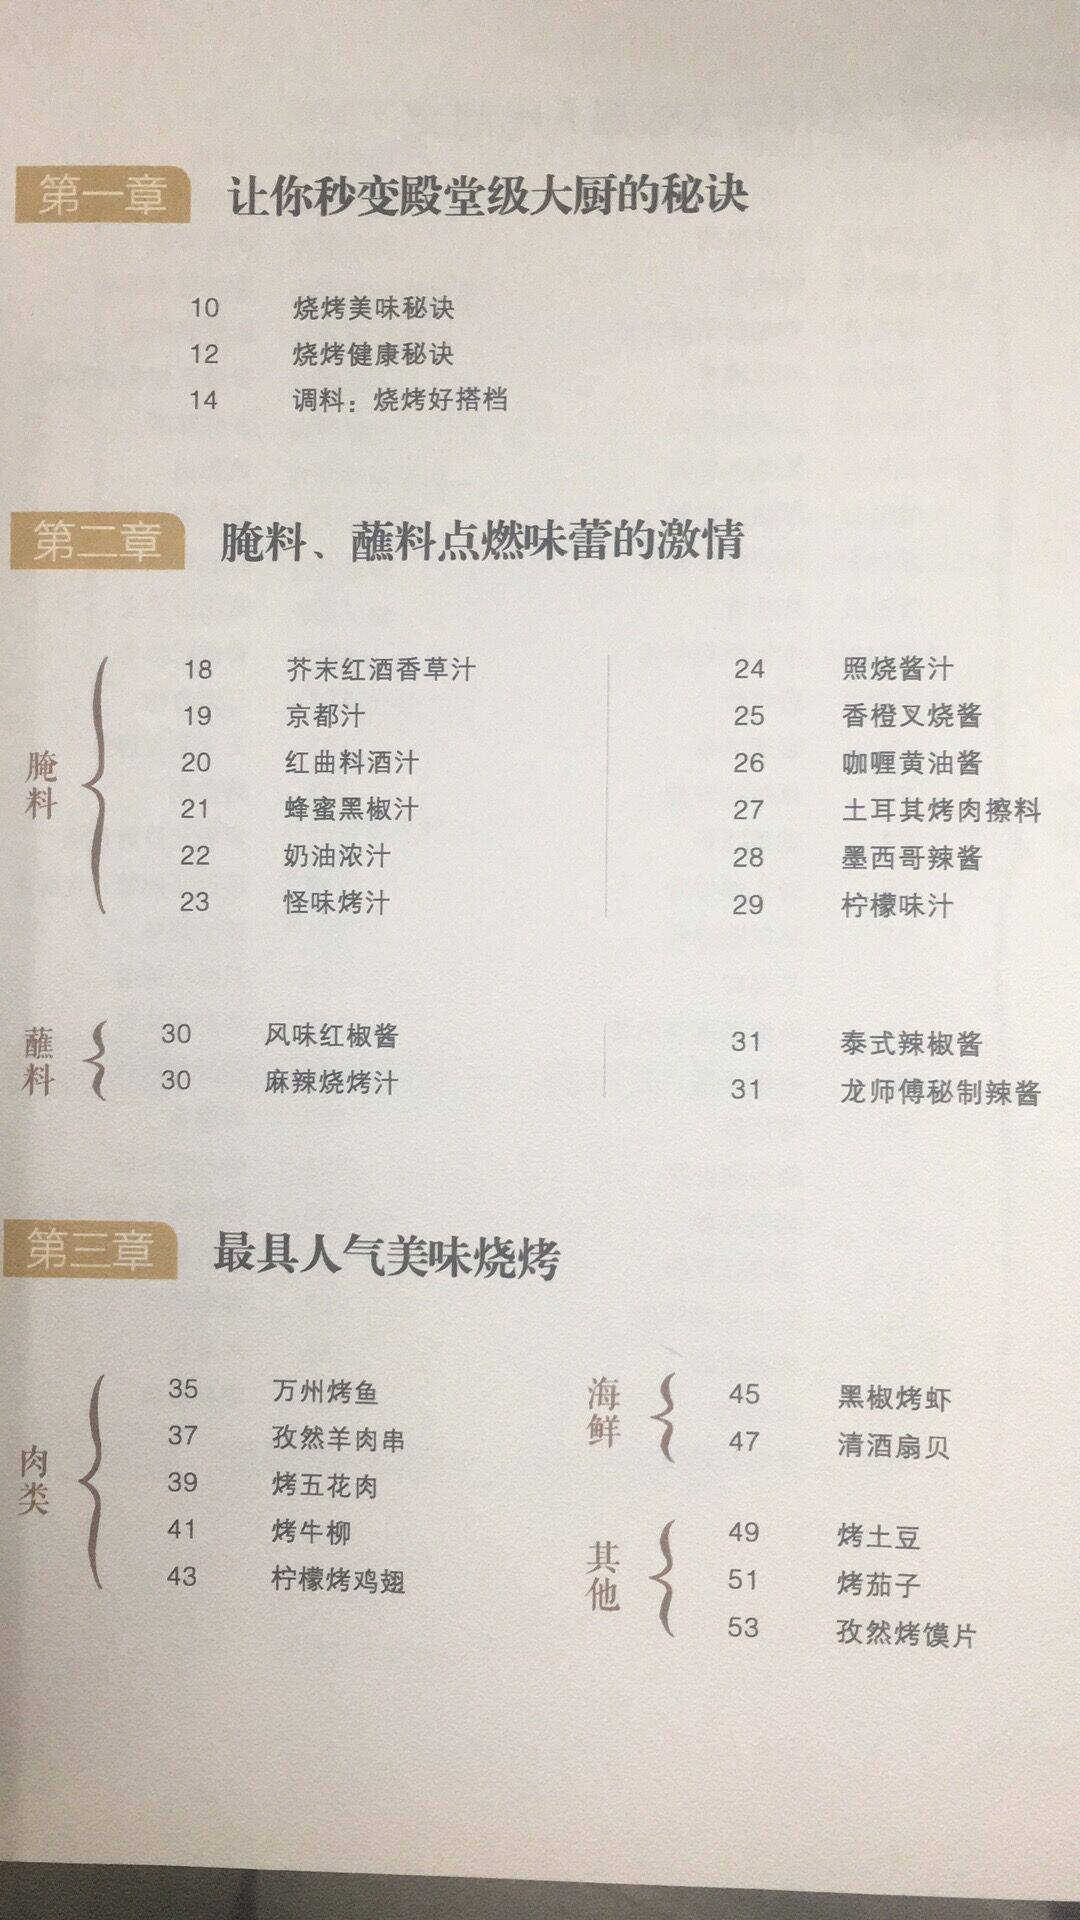 第一章 让你秒变殿堂级大厨的秘诀
10 烧烤美味秘诀
12 烧烤健康秘诀
14 调料：烧烤好搭档
第二章 腌料、蘸料点燃味蕾的激情
腌料
18 芥末红酒香草汁
19 京都汁
20 红曲料酒汁
21 蜂蜜黑椒汁
22 奶油浓汁
23 怪味烤汁
24 照烧酱汁
25 香橙叉烧酱
26 咖喱黄油酱
27 土耳其烤肉擦料
28 墨西哥辣酱
29 柠檬味汁
蘸料
30 风味红椒酱
30 麻辣烧烤汁
31 泰式辣椒酱
31 龙师傅秘制辣酱
第三章 最具人气美味烧烤
肉类
35 万州烤鱼
37 孜然羊肉串
39 烤五花肉
41 烤牛柳
43 柠檬烤鸡翅
海鲜
45 黑椒烤虾
47 清酒扇贝
其他
49 烤土豆
51 烤茄子
53 孜然烤馍片